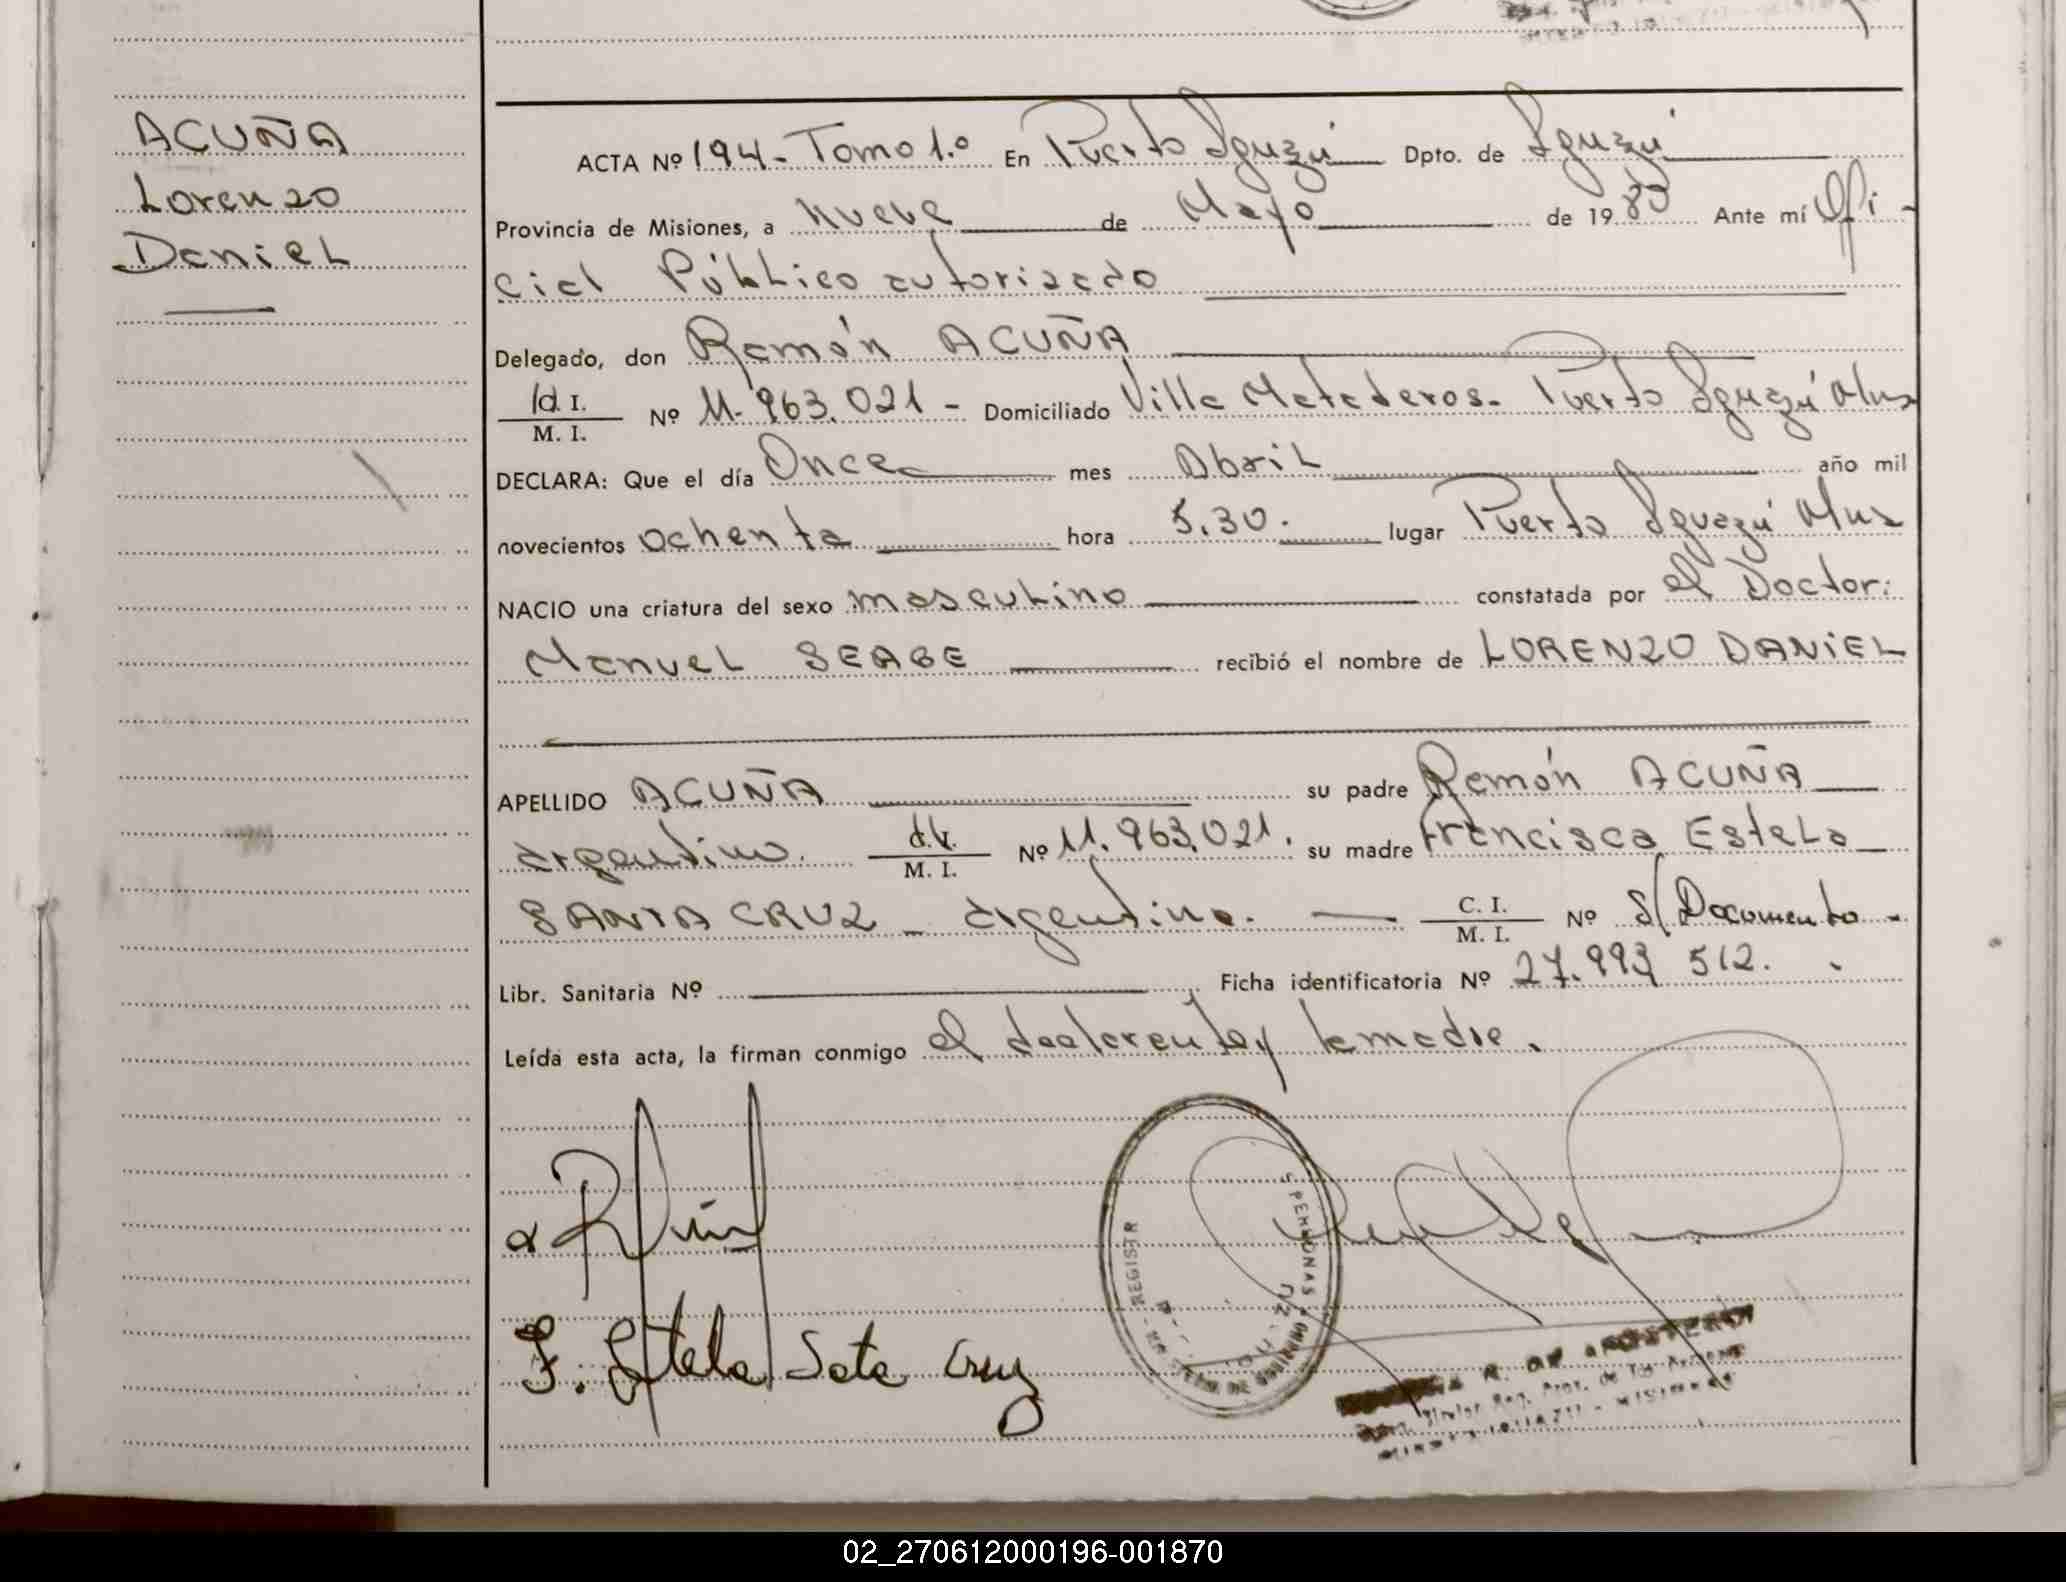 ACUÑA
Lorenzo
Daniel
ACTA Nº 194 - Tomo 1.º En Puerto Iguazú Dpto. de Iguazú
Provincia de Misiones, a nueve de Mayo de 1980 Ante mí Ofi-
cial Público autorizado
Delegado, don Ramón ACUÑA
d. I.
M. I. Nº 11.963.021 - Domiciliado Villa Mataderos - Puerto Iguazú Mnes
DECLARA: Que el día Once mes Abril año mil
novecientos ochenta hora 5.30. lugar Puerto Iguazú Mnes
NACIO una criatura del sexo masculino constatada por el Doctor:
Manuel SEABE recibió el nombre de LORENZO DANIEL
APELLIDO ACUÑA su padre Ramón ACUÑA
argentino. d.I.
M. I. Nº 11.963.021. su madre Francisca Estela
SANTA CRUZ - argentina. C. I.
M. I. Nº S/Documento -
Libr. Sanitaria Nº Ficha identificatoria Nº 27.993 512.
Leída esta acta, la firman conmigo el declarante y la madre.
F. Estela Sata Cruz
REGISTR
PERSONAS
02_270612000196-001870